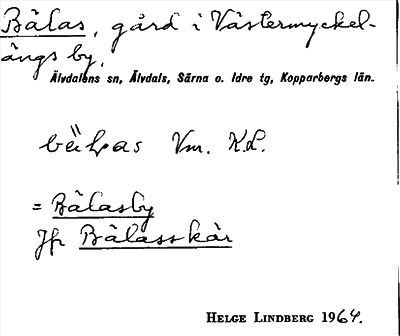 Bälas, gård i Västermyckel-
ängs by,
Älvdalens sn, Älvdals, Särna o. Idre tg, Kopparbergs län.
Vm. K.L.
= Bälasby
Jfr Bälasskär
HELGE LINDBERG 1964.